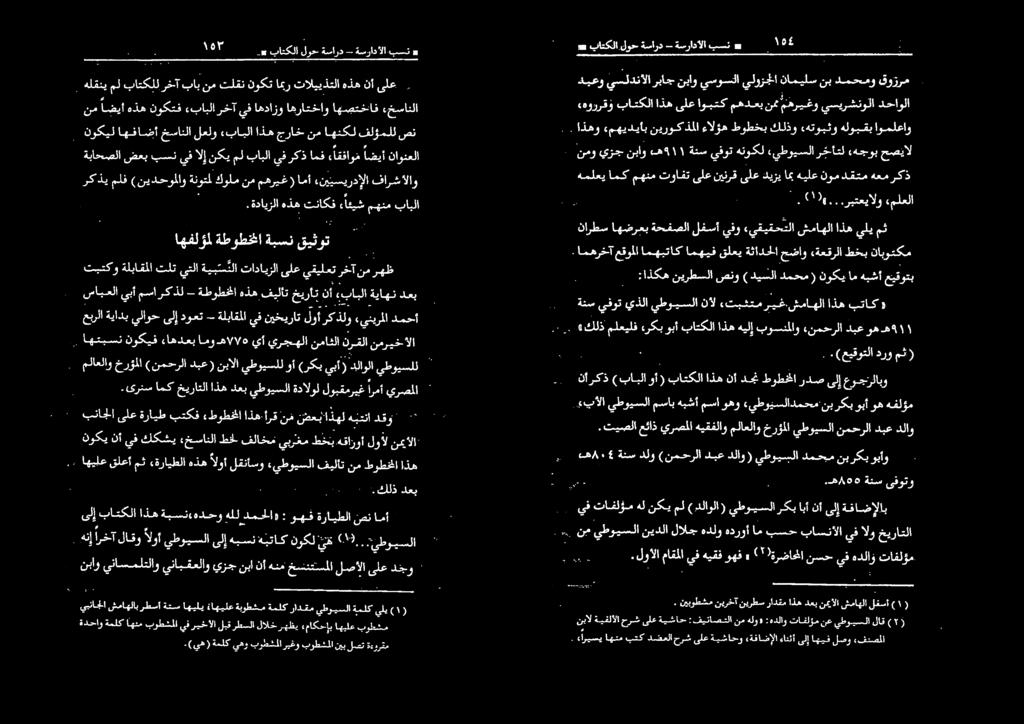 ١٥٣ ■ نسب الأدارسة – دراسة حول الكتاب ■
على أن هذه التذييلات ربما تكون نقلت من باب آخر للكتاب لم ينقله
الناسخ، فاختصها واختارها وزادها في آخر الباب، فتكون هذه أيضاً من
نص للمؤلف لكنها من خارج هذا الباب، ولعل الناسخ أضافها ليكون
العنوان أيضاً موافقاً، فما ذكر في الباب لم يكن إلا في نسب بعض الصحابة
والأشراف الإدريسيين، أما (غيرهم من ملوك لمتونة والموحدين) فلم يذكر
الباب منهم شيئاً، فكانت هذه الزيادة.
توثيق نسبة المخطوطة لمؤلفها
ظهر من آخر تعليقي على الزيادات النَّسَبية التي تلت المقابلة وكتبت
بعد نهاية الباب، أن تأريخ تأليف هذه المخطوطة – لذكر اسم أبي العباس
أحمد المريني، ولذكر أول تاريخين في المقابلة – تعود إلى حوالي بداية الربع
الأخير من القرن الثامن الهجري أي ٧٧٥هـ وما بعدها، فيكون نسبتها
للسيوطي الوالد (أبي بكر) أو للسيوطي الابن (عبد الرحمن) المؤرخ والعالم
المصري أمراً غير مقبول لولادة السيوطي بعد هذا التاريخ كما سنرى.
وقد انتبه لهذا بعض من قرأ هذا المخطوط، فكتب طيارة على الجانب
الأيمن لأول أوراقه بخط مغربي مخالف لخط الناسخ، يشكك في أن يكون
هذا المخطوط من تأليف السيوطي، وسأنقل أولاً هذه الطيارة، ثم أعلق عليها
بعد ذلك.
أما نص الطيارة فهو: «الحمد لله وحده، نسبة هذا الكتاب إلى
السيوطي...(١) هي لكون كاتبه نسبه إلى السيوطي أولاً وقال آخراً إنه
وجد على الأصل المستنسخ منه أن ابن جزي والعقباني والتلمساني وابن
(١) يلي كلمة السيوطي مقدار كلمة مشطوبة عليها، يليها ستة أسطر بالهامش الجانبي
مشطوب عليها بإحكام، يظهر خلال السطر قبل الأخير في المشطوب منها كلمة واحدة
مقروءة تصل بين المشطوب وغير المشطوب وهي كلمة (هي).
١٥٤ ■ نسب الأدارسة – دراسة حول الكتاب ■
مرزوق ومحمد بن سليمان الجزولي السوسي وابن جابر الأندلسي وعبد
الواحد الونشريسي وغيرهم ممن بعدهم كتبوا على هذا الكتاب وقرروه،
واعلموا بقبوله وثبوته، وذلك بخطوط هؤلاء المذكورين بأيديهم، وهذا
لا يصح بوجه، لتأخر السيوطي، لكونه توفي سنة ٩١١هـ، وابن جزي ومن
ذكر معه متقدمون عليه بما يزيد على قرنين على تفاوت منهم كما يعلمه
العلم، ولا يعتبر...»(١).
ثم يلي هذا الهامش التحقيقي، وفي أسفل الصفحة بعرضها سطران
مكتوبان بخط الرقعة، واضح الحداثة يعلق فيهما كاتبهما الموقع آخرهما
بتوقيع أشبه ما يكون (محمد السيد) ونص السطرين هكذا:
«كاتب هذا الهامش غير متثبت، لأن السيوطي الذي توفي سنة
٩١١هـ هو عبد الرحمن، والمنسوب إليه هذا الكتاب أبو بكر، فليعلم ذلك»
(ثم ورد التوقيع).
وبالرجوع إلى صدر المخطوط نجد أن هذا الكتاب (أو الباب) ذكر أن
مؤلفه هو أبو بكر بن محمد السيوطي، وهو اسم أشبه باسم السيوطي الأب،
والد عبد الرحمن السيوطي المؤرخ والعالم والفقيه المصري ذائع الصيت.
وأبو بكر بن محمد السيوطي (والد عبد الرحمن) ولد سنة ٨٠٤هـ،
وتوفى سنة ٨٥٥هـ.
بالإضافة إلى أن أبا بكر السيوطي (الوالد) لم يكن له مؤلفات في
التاريخ ولا في الأنساب حسب ما أورده ولده جلال الدين السيوطي من
مؤلفات والده في حسن المحاضرة(٢) «فهو فقيه في المقام الأول.
(١) أسفل الهامش الأيمن بعد هذا مقدار سطرين آخرين مشطوبين.
(٢) قال السيوطي عن مؤلفات والده: «وله من التصانيف: حاشية على شرح الألفية لابن
المصنف، وصل فيها إلى أثناء الإضافة، وحاشية على شرح العضد كتب منها يسيراً،